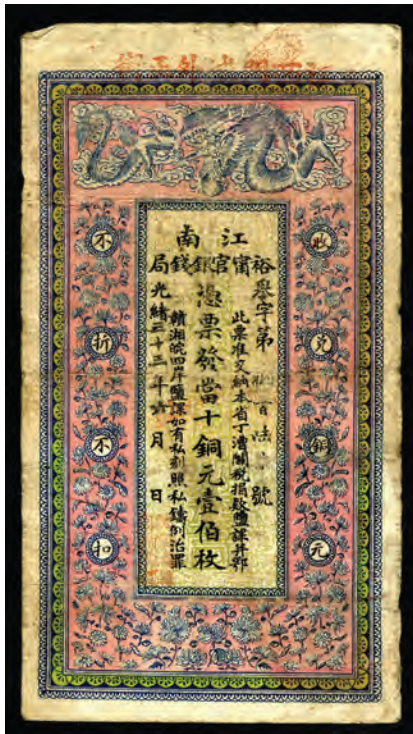 江南
裕甯官銀錢局
收兌銅元
字第百陸號
此票准交納本省丁漕關稅捐款鹽課并鄂
憑票發當十銅元壹佰枚
贛湘皖四岸鹽課如有私刻照私鑄例治罪
光緒三十三年月日
不折不扣